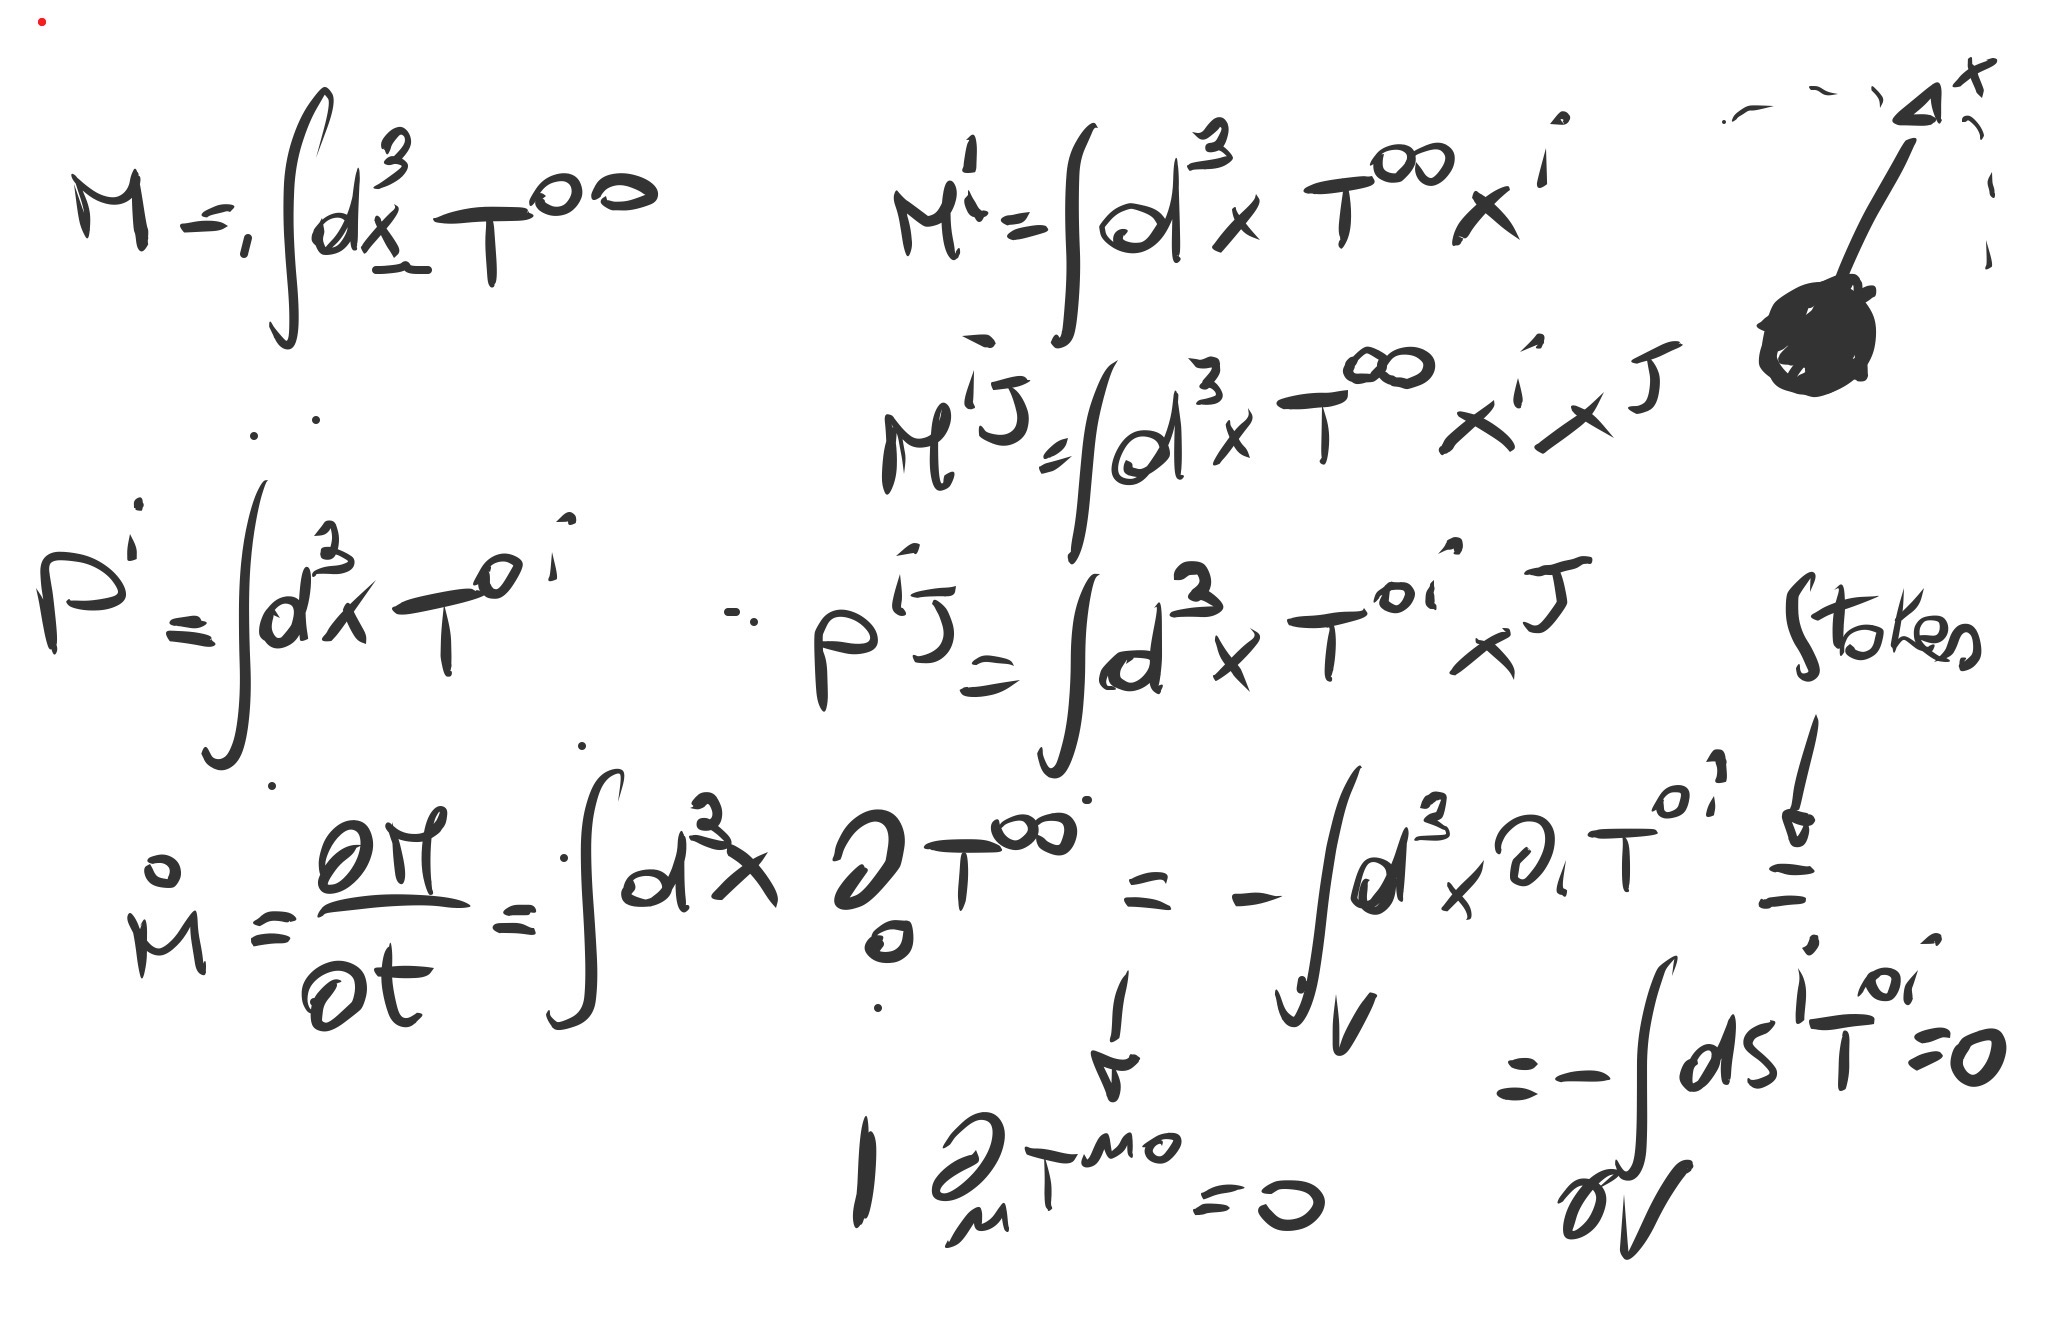 M = ∫ d³x T⁰⁰
Mⁱ = ∫ d³x T⁰⁰ xⁱ
x
Mⁱʲ = ∫ d³x T⁰⁰ xⁱ xʲ
Pⁱ = ∫ d³x T⁰ⁱ
Pⁱʲ = ∫ d³x T⁰ⁱ xʲ
Stokes
Ṁ = ∂M/∂t = ∫ d³x ∂₀ T⁰⁰ = - ∫_V d³x ∂ᵢ T⁰ⁱ =
= - ∫_∂V dSⁱ T⁰ⁱ = 0
| ∂_μ T^μ0 = 0